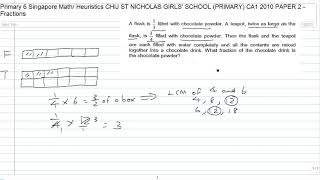 Primary 6 Singapore Math/ Heuristics CHIJ ST NICHOLAS GIRLS' SCHOOL (PRIMARY) CA1 2010 PAPER 2 -
Fractions
A flask is filled with chocolate powder. A teapot, twice as large as the
flask, is 1/4 filled with chocolate powder. Then the flask and the teapot
are each filled with water completely and all the contents are mixed
together into a chocolate drink. What fraction of the chocolate drink is
the chocolate powder?
F
T
1/4 x 6 = 3/2 of a box => LCM of 4 and 6
4, 8, 12
1/4 x 12 = 3
6, 12, 18